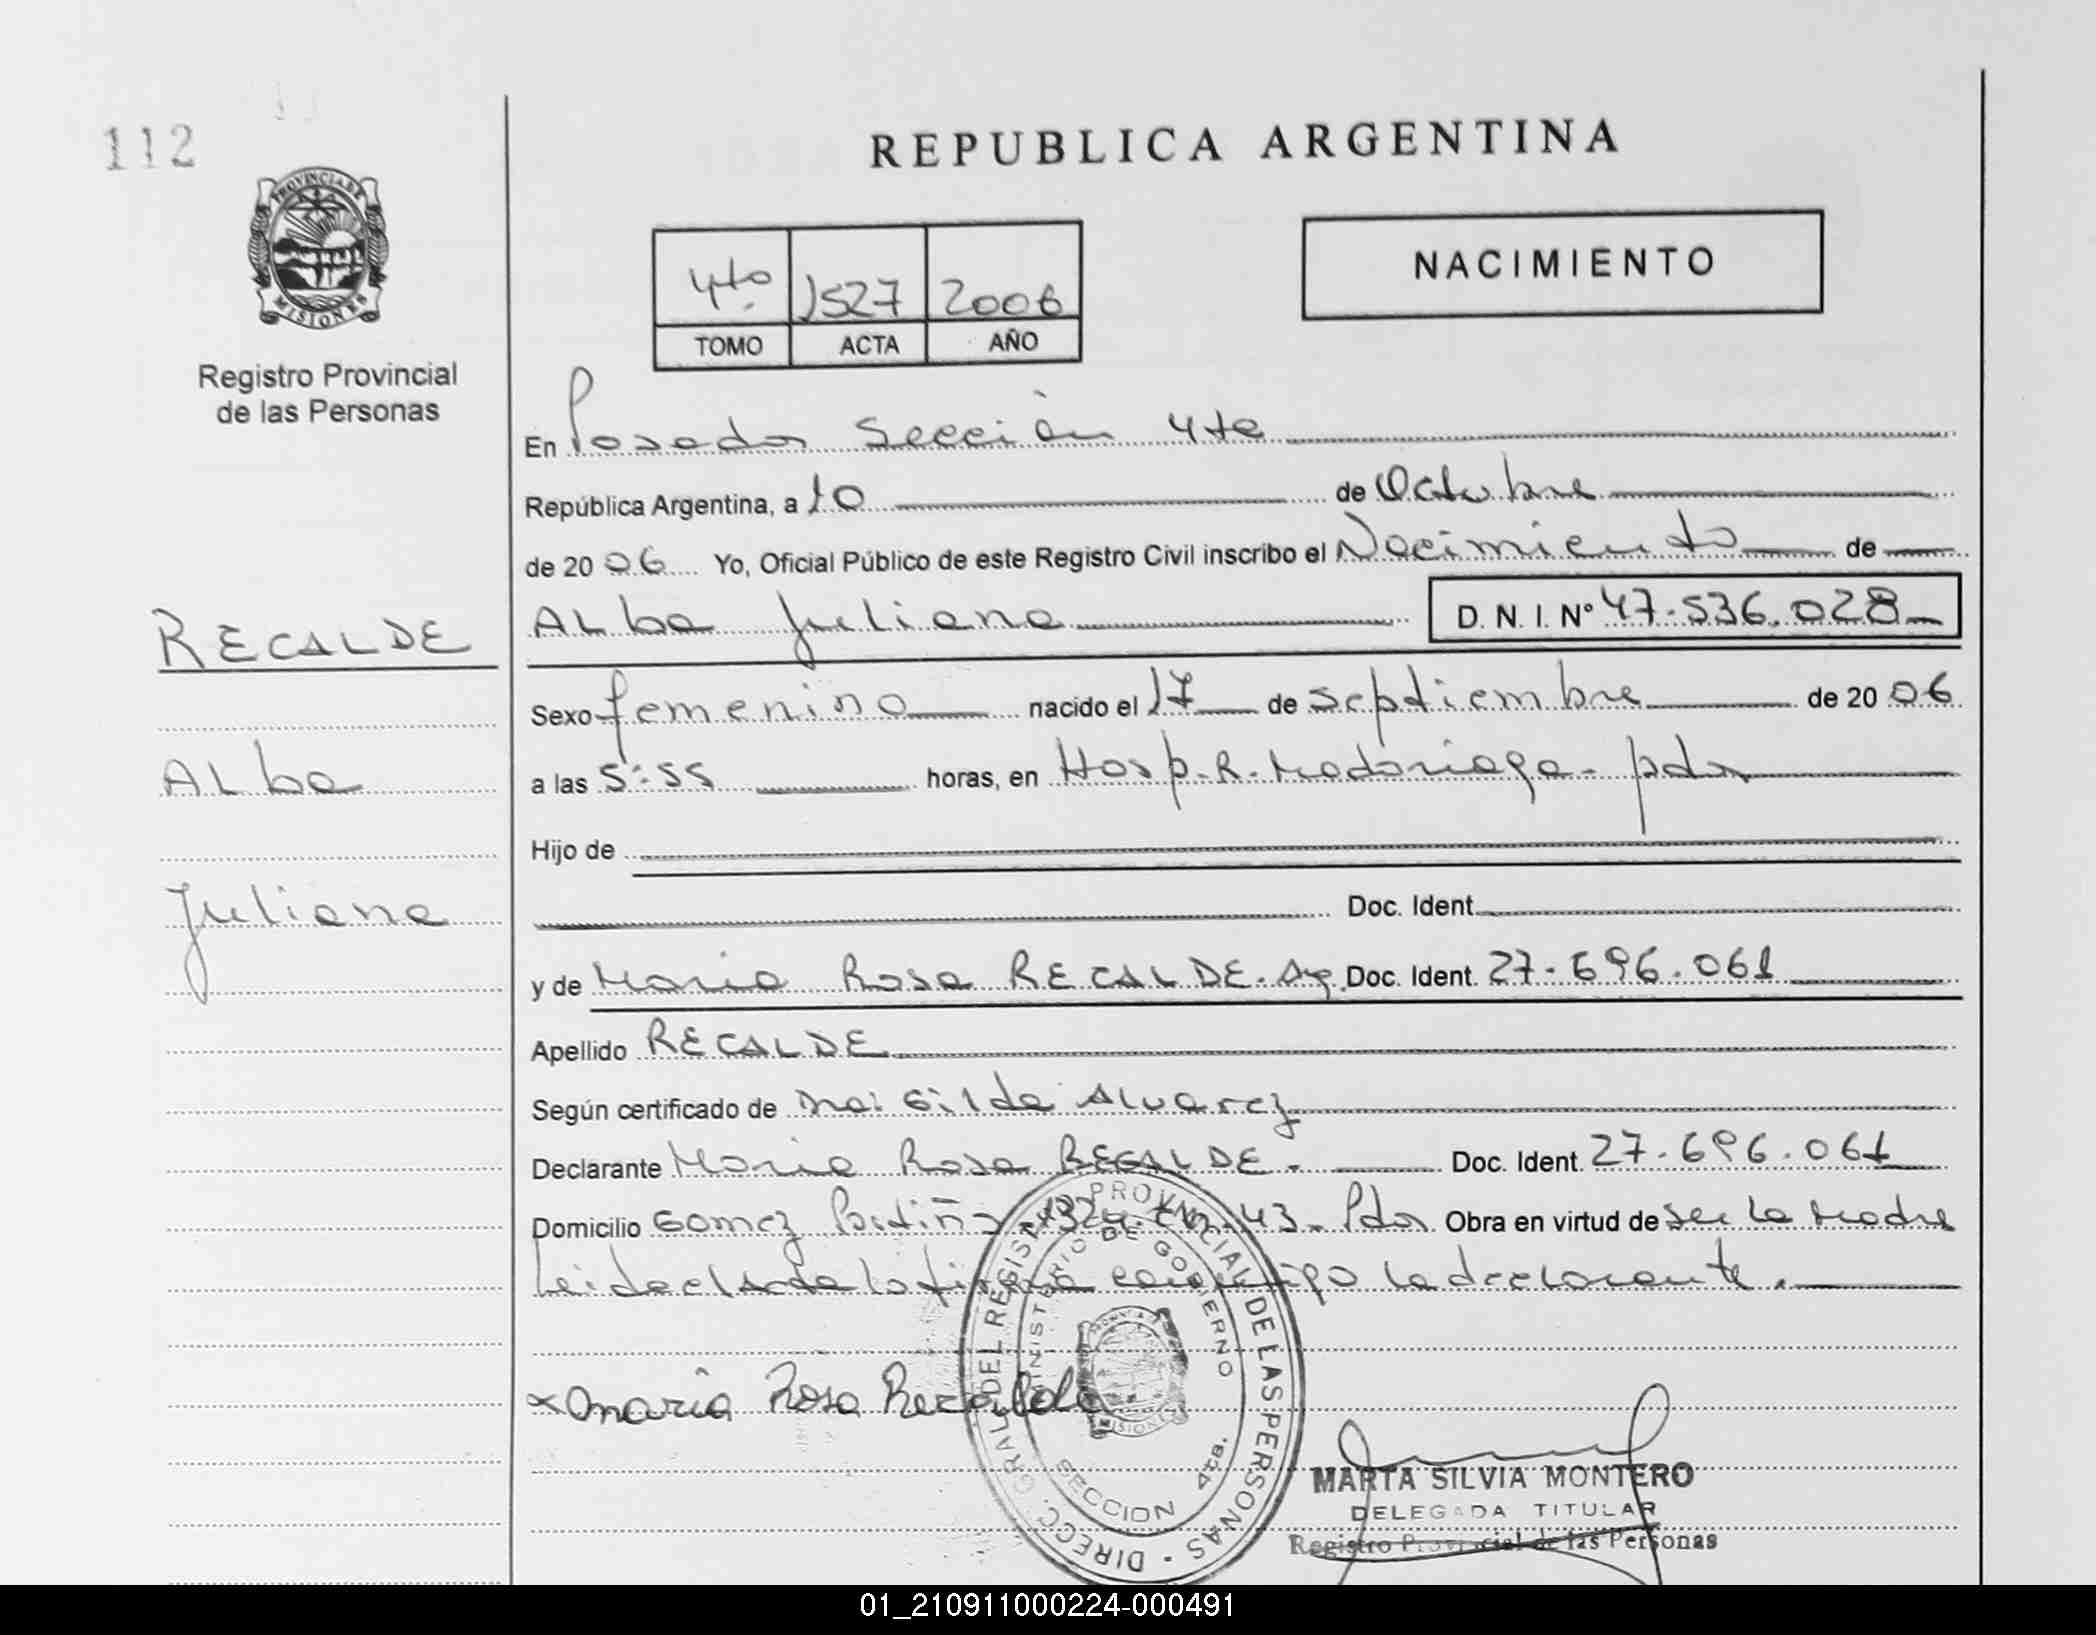 112
PROVINCIA DE
MISIONES
Registro Provincial
de las Personas
REPUBLICA ARGENTINA
4to 1527 2006
TOMO ACTA AÑO
NACIMIENTO
En Posadas Sección 4ta
República Argentina, a 10 de Octubre
de 2006 Yo, Oficial Público de este Registro Civil inscribo el Nacimiento de
RECALDE
Alba Juliana D.N.I. Nº 47.536.028
Sexo femenino nacido el 17 de septiembre de 2006
Alba
a las 5:55 horas, en Hosp. R. Madariaga - pdas
Hijo de
Juliana
Doc. Ident.
y de Maria Rosa RECALDE. Ag. Doc. Ident. 27.696.061
Apellido RECALDE
Según certificado de Gilda Alvarez
Declarante Maria Rosa RECALDE. Doc. Ident. 27.696.061
Domicilio Gomez Portiño 43 - Pdas Obra en virtud de ser la Madre
Leida el Acta la firma conmigo la declarante.
x Maria Rosa Recalde
DIRECC. GRAL. DEL REGISTRO PROVINCIAL DE LAS PERSONAS
MINISTERIO DE GOBIERNO
SECCION 4ta.
MISIONES
MARTA SILVIA MONTERO
DELEGADA TITULAR
Registro Provincial de las Personas
01_210911000224-000491